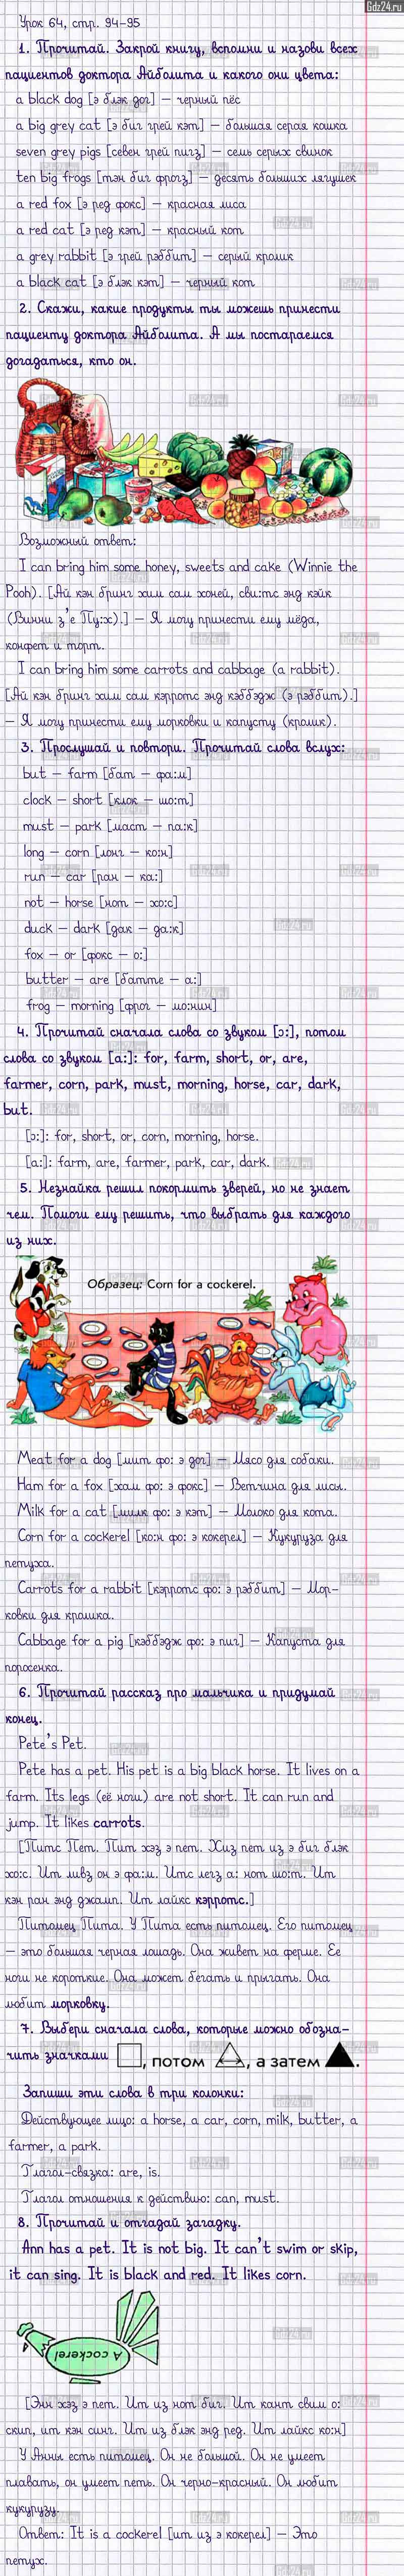 Gdz24.ru
Урок 64, стр. 94-95
1. Прочитай. Закрой книгу, вспомни и назови всех
пациентов доктора Айболита и какого они цвета:
a black dog [э блэк дог] – черный пёс
a big grey cat [э биг грей кэт] – большая серая кошка
seven grey pigs [севен грей пигз] – семь серых свинок
ten big frogs [тэн биг фрогз] – десять больших лягушек
a red fox [э ред фокс] – красная лиса
a red cat [э ред кэт] – красный кот
a grey rabbit [э грей рэббит] – серый кролик
a black cat [э блэк кэт] – черный кот
2. Скажи, какие продукты ты можешь принести
пациенту доктора Айболита. А мы постараемся
догадаться, кто он.
Возможный ответ:
I can bring him some honey, sweets and cake (Winnie the
Pooh). [Ай кэн бринг хим сам хоней, сви:тс энд кэйк
(Винни з'е Пу:х).] – Я могу принести ему мёда,
конфет и торт.
I can bring him some carrots and cabbage (a rabbit).
[Ай кэн бринг хим сам кэрротс энд кэббэдж (э рэббит).]
– Я могу принести ему морковки и капусту (кролик).
3. Прослушай и повтори. Прочитай слова вслух:
but – farm [бат – фа:м]
clock – short [клок – шо:т]
must – park [маст – па:к]
long – corn [лонг – ко:н]
run – car [ран – ка:]
not – horse [нот – хо:с]
duck – dark [дак – да:к]
fox – or [фокс – о:]
butter – are [батте – а:]
frog – morning [фрог – мо:нин]
4. Прочитай сначала слова со звуком [ɔ:], потом
слова со звуком [a:]: for, farm, short, or, are,
farmer, corn, park, must, morning, horse, car, dark,
but.
[ɔ:]: for, short, or, corn, morning, horse.
[a:]: farm, are, farmer, park, car, dark.
5. Незнайка решил покормить зверей, но не знает
чем. Помоги ему решить, что выбрать для каждого
из них.
Образец: Corn for a cockerel.
Meat for a dog [мит фо: э дог] – Мясо для собаки.
Ham for a fox [хам фо: э фокс] – Ветчина для лисы.
Milk for a cat [милк фо: э кэт] – Молоко для кота.
Corn for a cockerel [ко:н фо: э кокерел] – Кукуруза для
петуха.
Carrots for a rabbit [кэрротс фо: э рэббит] – Мор-
ковки для кролика.
Cabbage for a pig [кэббэдж фо: э пиг] – Капуста для
поросенка.
6. Прочитай рассказ про мальчика и придумай
конец.
Pete's Pet.
Pete has a pet. His pet is a big black horse. It lives on a
farm. Its legs (её ноги) are not short. It can run and
jump. It likes carrots.
[Питс Пет. Пит хэз э пет. Хиз пет из э биг блэк
хо:с. Ит ливз он э фа:м. Итс легз а: нот шо:т. Ит
кэн ран энд джамп. Ит лайкс кэрротс.]
Питомец Пита. У Пита есть питомец. Его питомец
– это большая черная лошадь. Она живет на ферме. Ее
ноги не короткие. Она может бегать и прыгать. Она
любит морковку.
7. Выбери сначала слова, которые можно обозна-
чить значками , потом , а затем .
Запиши эти слова в три колонки:
Действующее лицо: a horse, a car, corn, milk, butter, a
farmer, a park.
Глагол-связка: are, is.
Глагол отношения к действию: can, must.
8. Прочитай и отгадай загадку.
Ann has a pet. It is not big. It can't swim or skip,
it can sing. It is black and red. It likes corn.
A cockerel
[Энн хэз э пет. Ит из нот биг. Ит кант свим о:
скип, ит кэн синг. Ит из блэк энд ред. Ит лайкс ко:н]
У Анны есть питомец. Он не большой. Он не умеет
плавать, он умеет петь. Он черно-красный. Он любит
кукурузу.
Ответ: It is a cockerel [ит из э кокерел] – Это
петух.